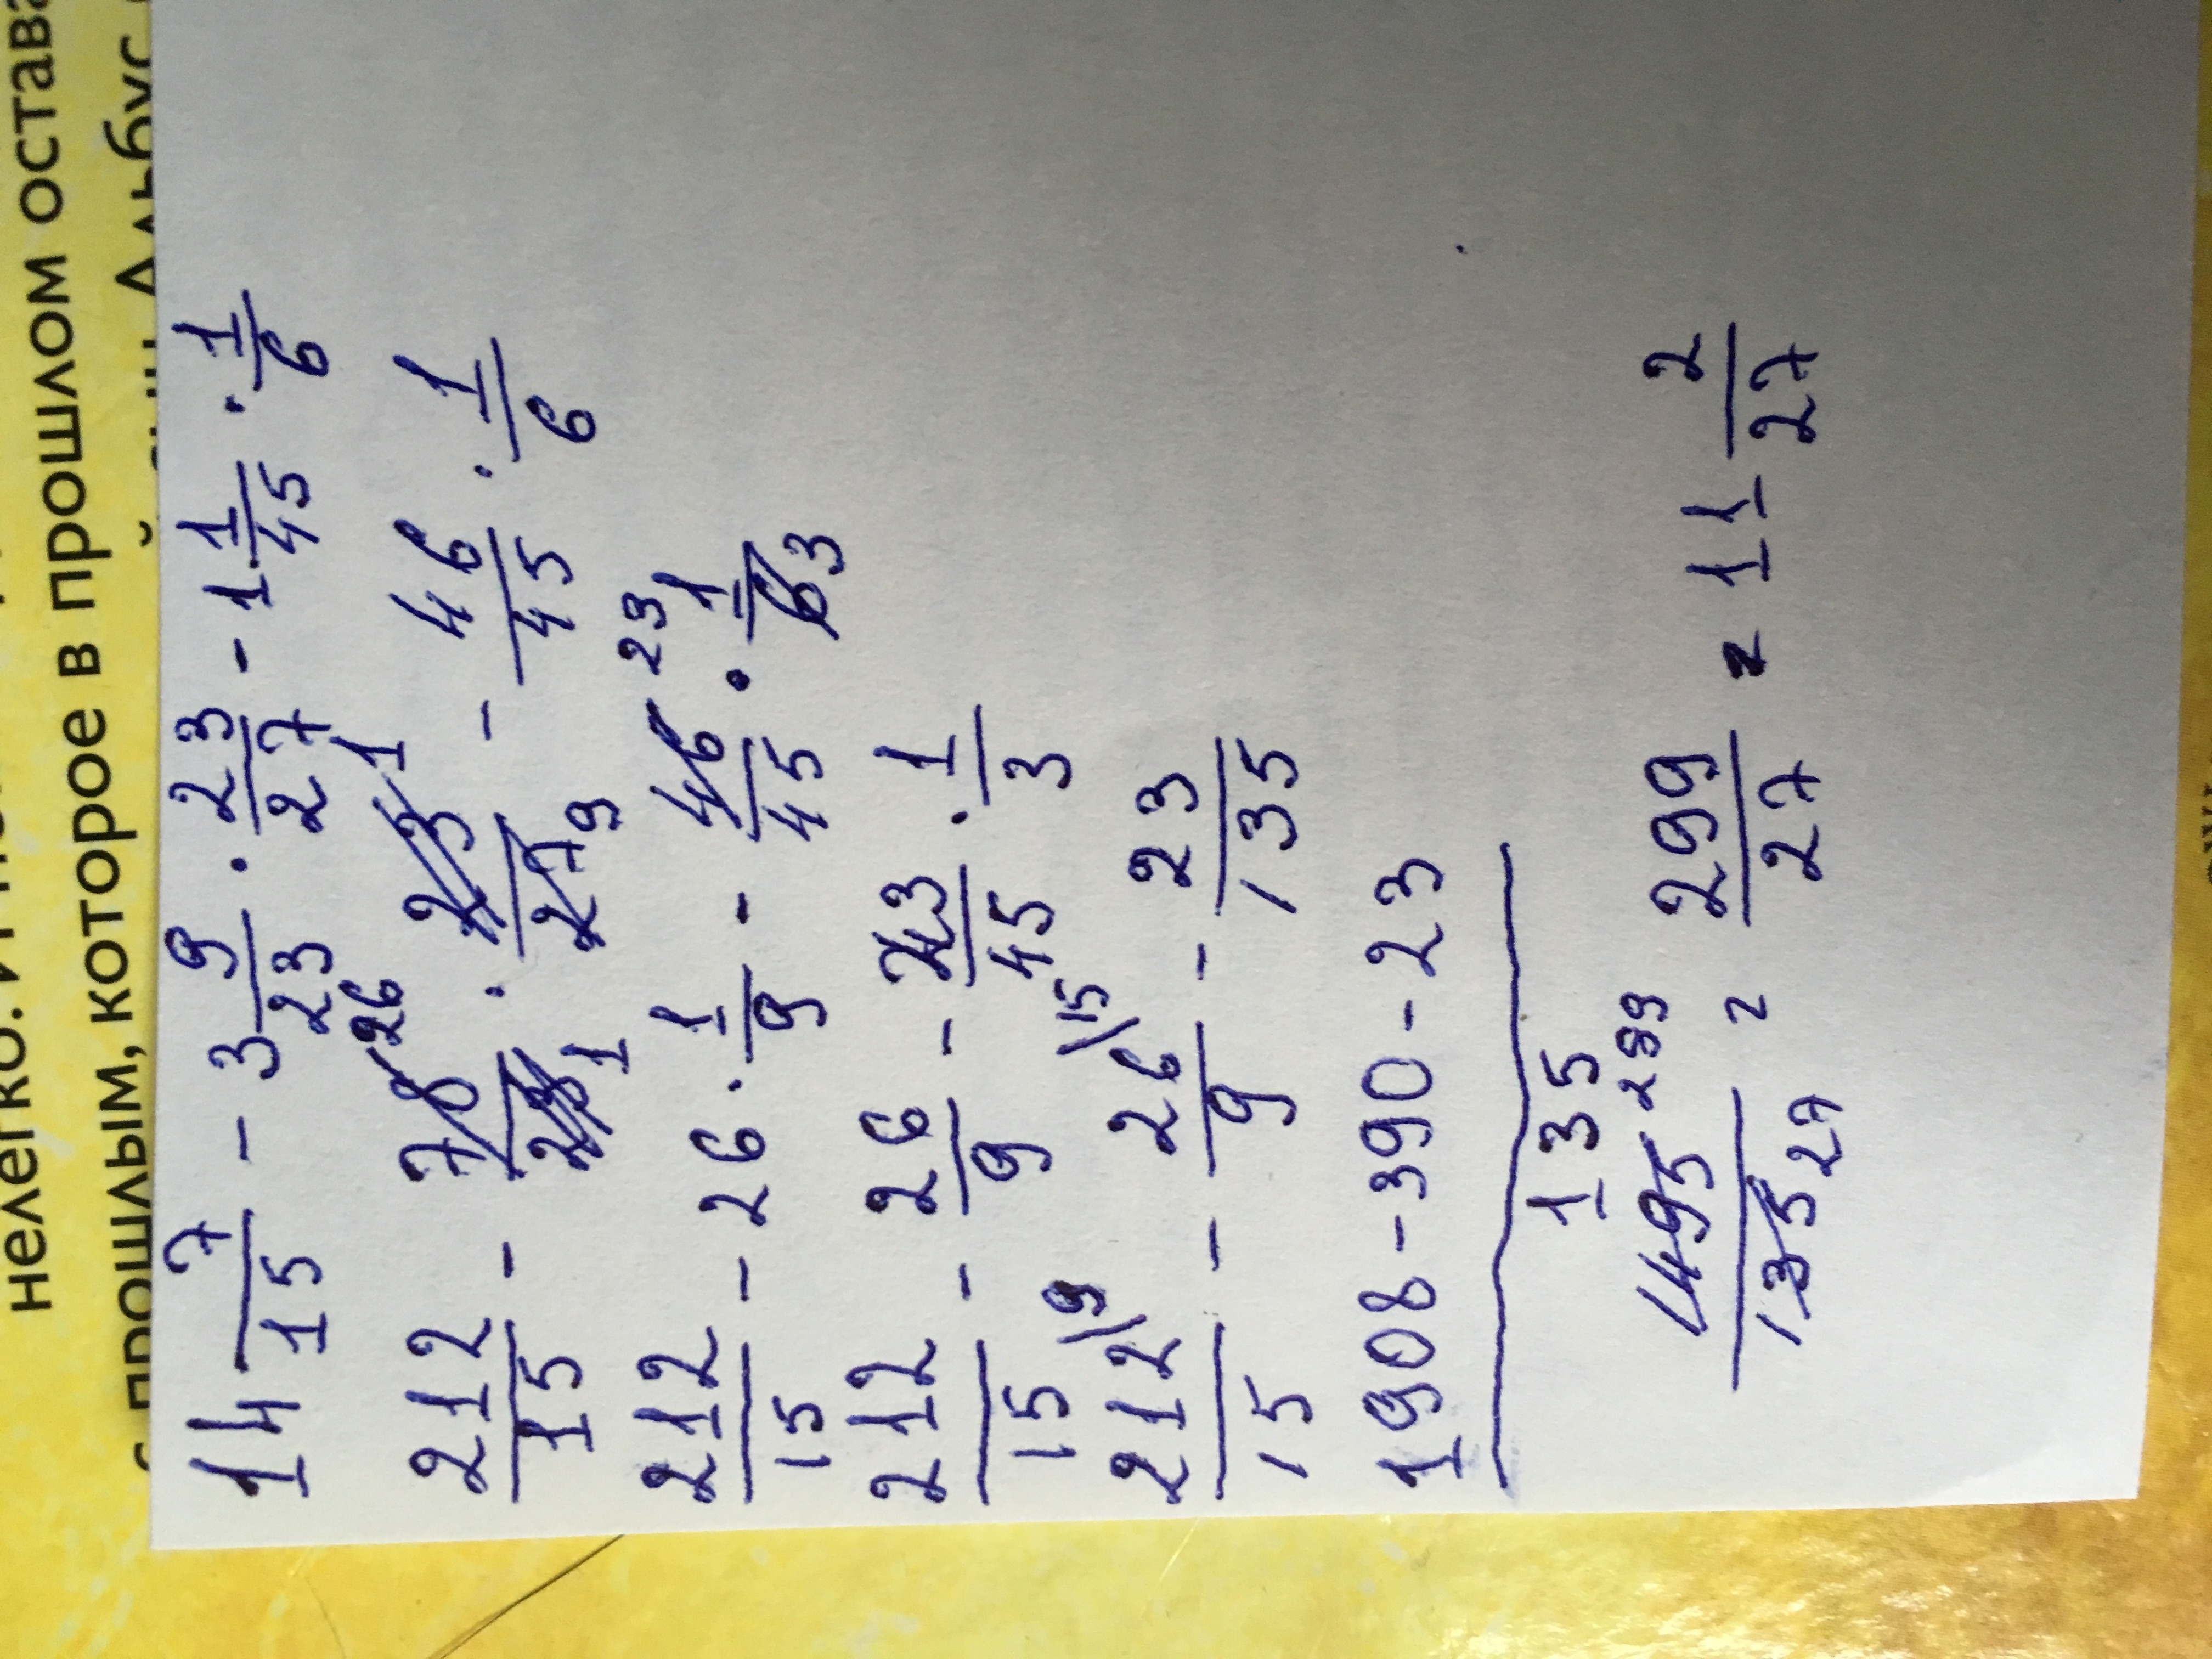 нелегко. И
прошлым, которое в прошлом остава
с прошлым
Альбус
14 7/15 - 3 9/23 · 23/27 - 1 1/45 · 1/6
212/15 - 78 26/23 1 · 23 1/27 9 - 46/45 · 1/6
212/15 - 26 · 1/9 - 46 23/45 · 1/6 3
212/15 - 26/9 - 23/45 · 1/3
212\9/15 - 26\15/9 - 23/135
1908-390-23/135
1495 299/135 27 = 299/27 = 11 2/27